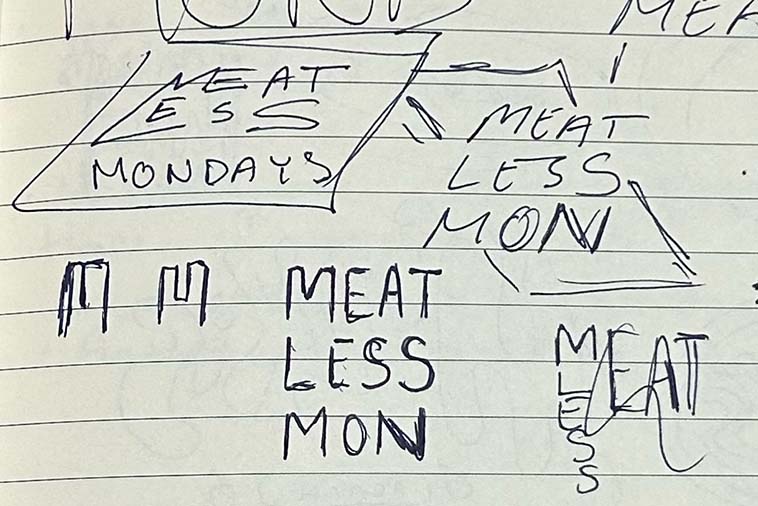 MEA
MEAT
LESS
MONDAYS
MEAT
LESS
MON
M M
MEAT
LESS
MON
MEAT
LESS